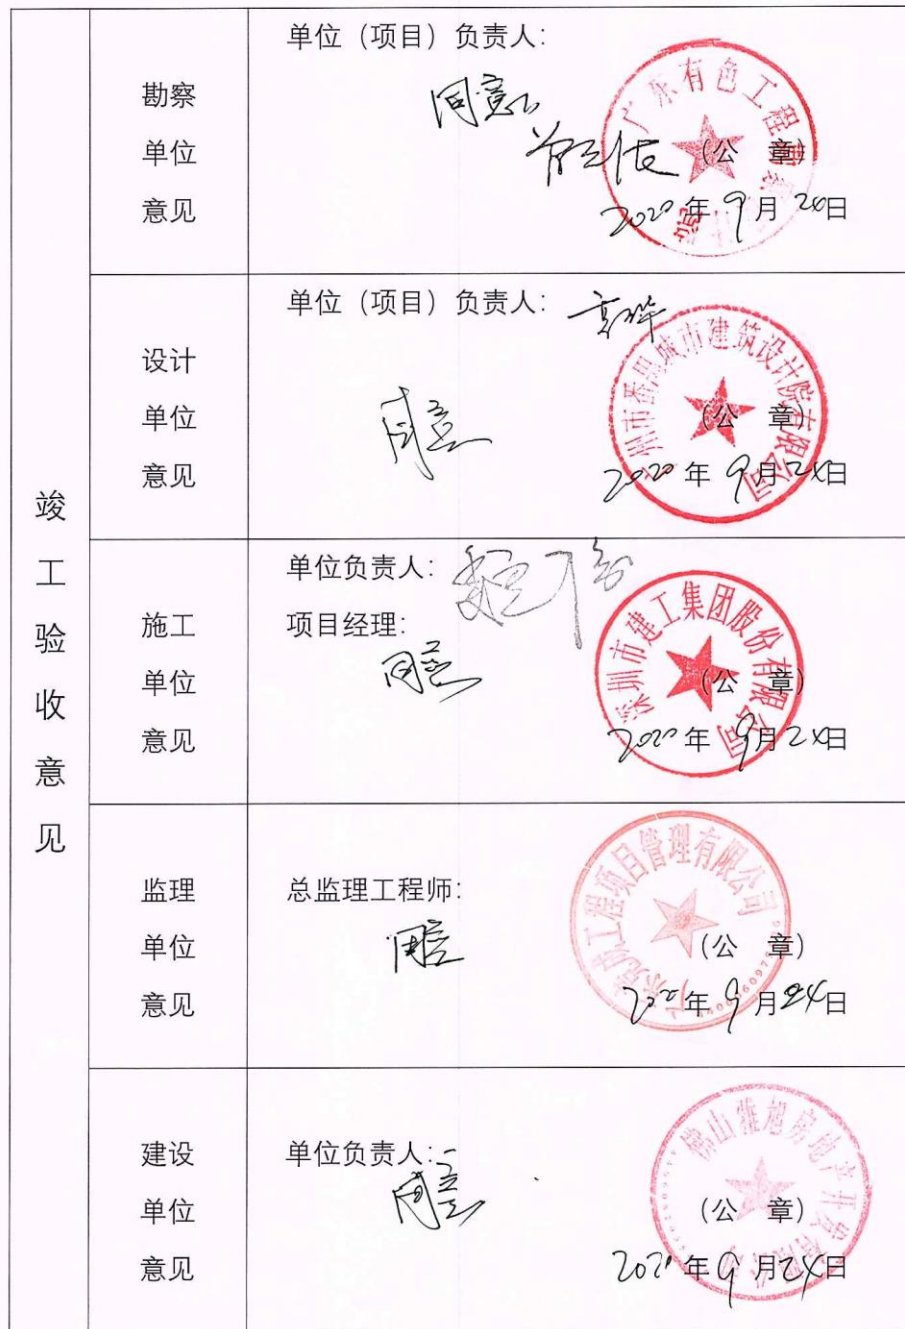 竣工验收意见
勘察单位意见
单位（项目）负责人：
同意
广东有色工程勘察
（公 章）
2020年9月24日
设计单位意见
单位（项目）负责人：
同意
广州市番禺城市建筑设计院有限公司
（公 章）
2020年9月24日
施工单位意见
单位负责人：
项目经理：
同意
深圳市建工集团股份有限公司
（公 章）
2020年9月24日
监理单位意见
总监理工程师：
同意
工程项目管理有限公司
（公 章）
2020年9月24日
建设单位意见
单位负责人：
同意
佛山雅旭房地产开发有限公司
（公 章）
2020年9月24日